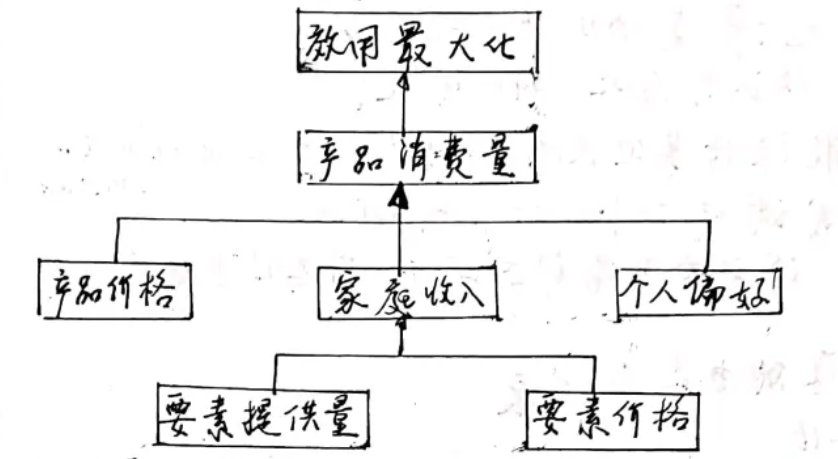 效用最大化
产品消费量
产品价格 家庭收入 个人偏好
要素提供量 要素价格